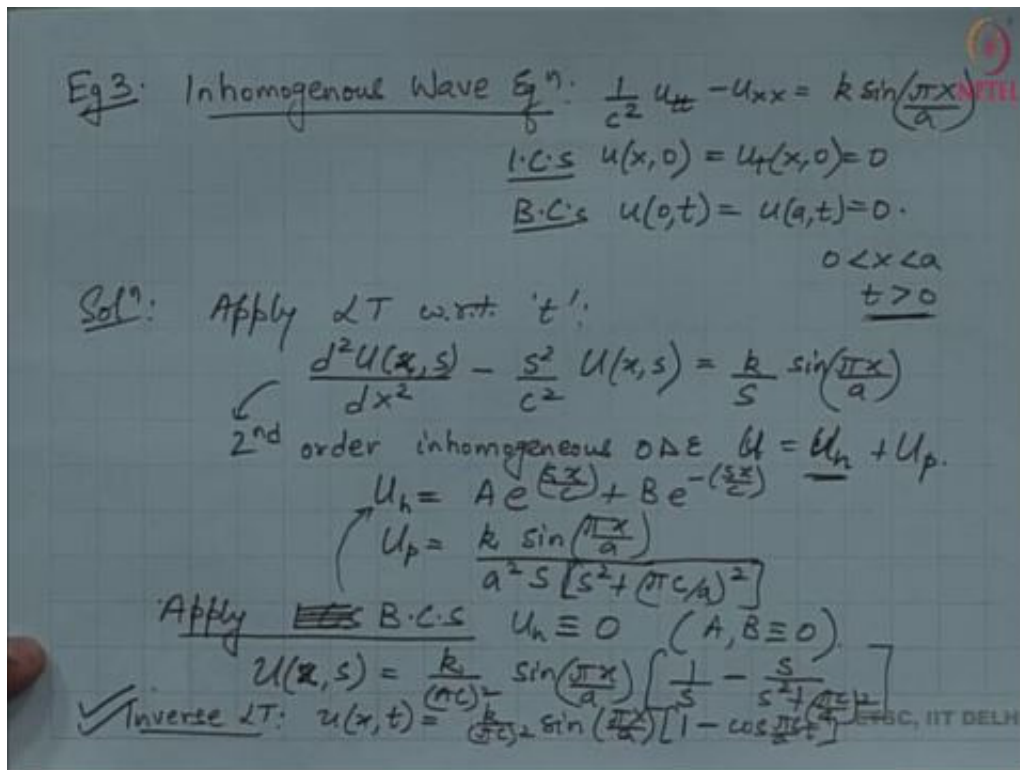 Eg 3: Inhomogenous Wave Eqⁿ: 1/c² u_tt - u_xx = k sin(πx/a)
NPTEL
I.C.s u(x,0) = u_t(x,0) = 0
B.C.s u(0,t) = u(a,t) = 0.
0 < x < a
t > 0
Solⁿ: Apply LT w.r.t. 't':
d²U(x,s)/dx² - s²/c² U(x,s) = k/s sin(πx/a)
2nd order inhomogeneous ODE U = U_h + U_p.
U_h = A e^(sx/c) + B e^-(sx/c)
U_p = k sin(πx/a) / a² s [s² + (πc/a)²]
Apply B.C.s U_h ≡ 0 (A, B ≡ 0).
U(x,s) = k/(πc)² sin(πx/a) [1/s - s/(s² + (πc/a)²)]
Inverse LT: u(x,t) = k/(πc)² sin(πx/a) [1 - cos πct/a]
ETSC, IIT DELH